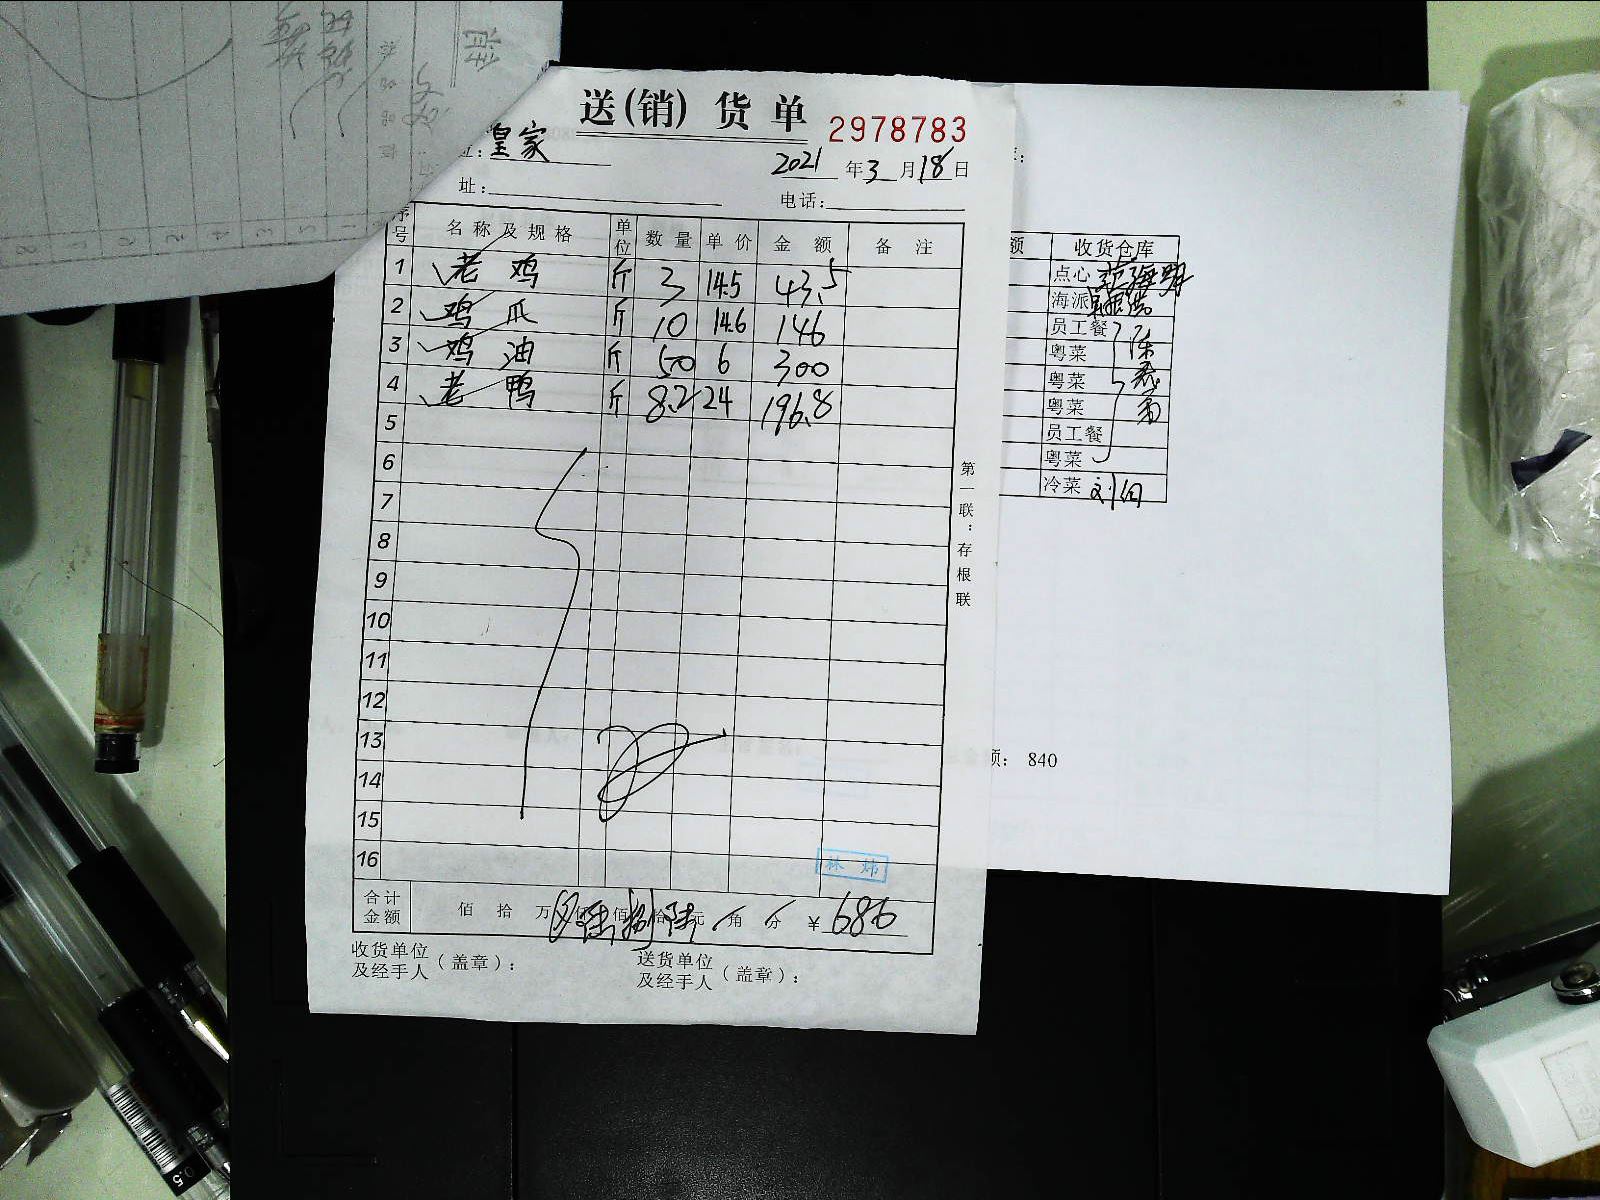 送(销)货单
2978783
皇家
2021年3月18日
址:
电话:
序号 名称及规格 单位 数量 单价 金额 备注
1 老鸡 斤 3 14.5 43.5
2 鸡爪 斤 10 14.6 146
3 鸡油 斤 50 6 300
4 老鸭 斤 8.2 24 196.8
5
6
7
8
9
10
11
12
13
14
15
16
林炜
合计金额 佰拾万 陆佰捌拾陆元 角 分 ¥686
收货单位及经手人(盖章):
送货单位及经手人(盖章):
第一联:存根联
额 收货仓库
点心
海派
员工餐
粤菜
粤菜
粤菜
员工餐
粤菜
冷菜
840
0.5